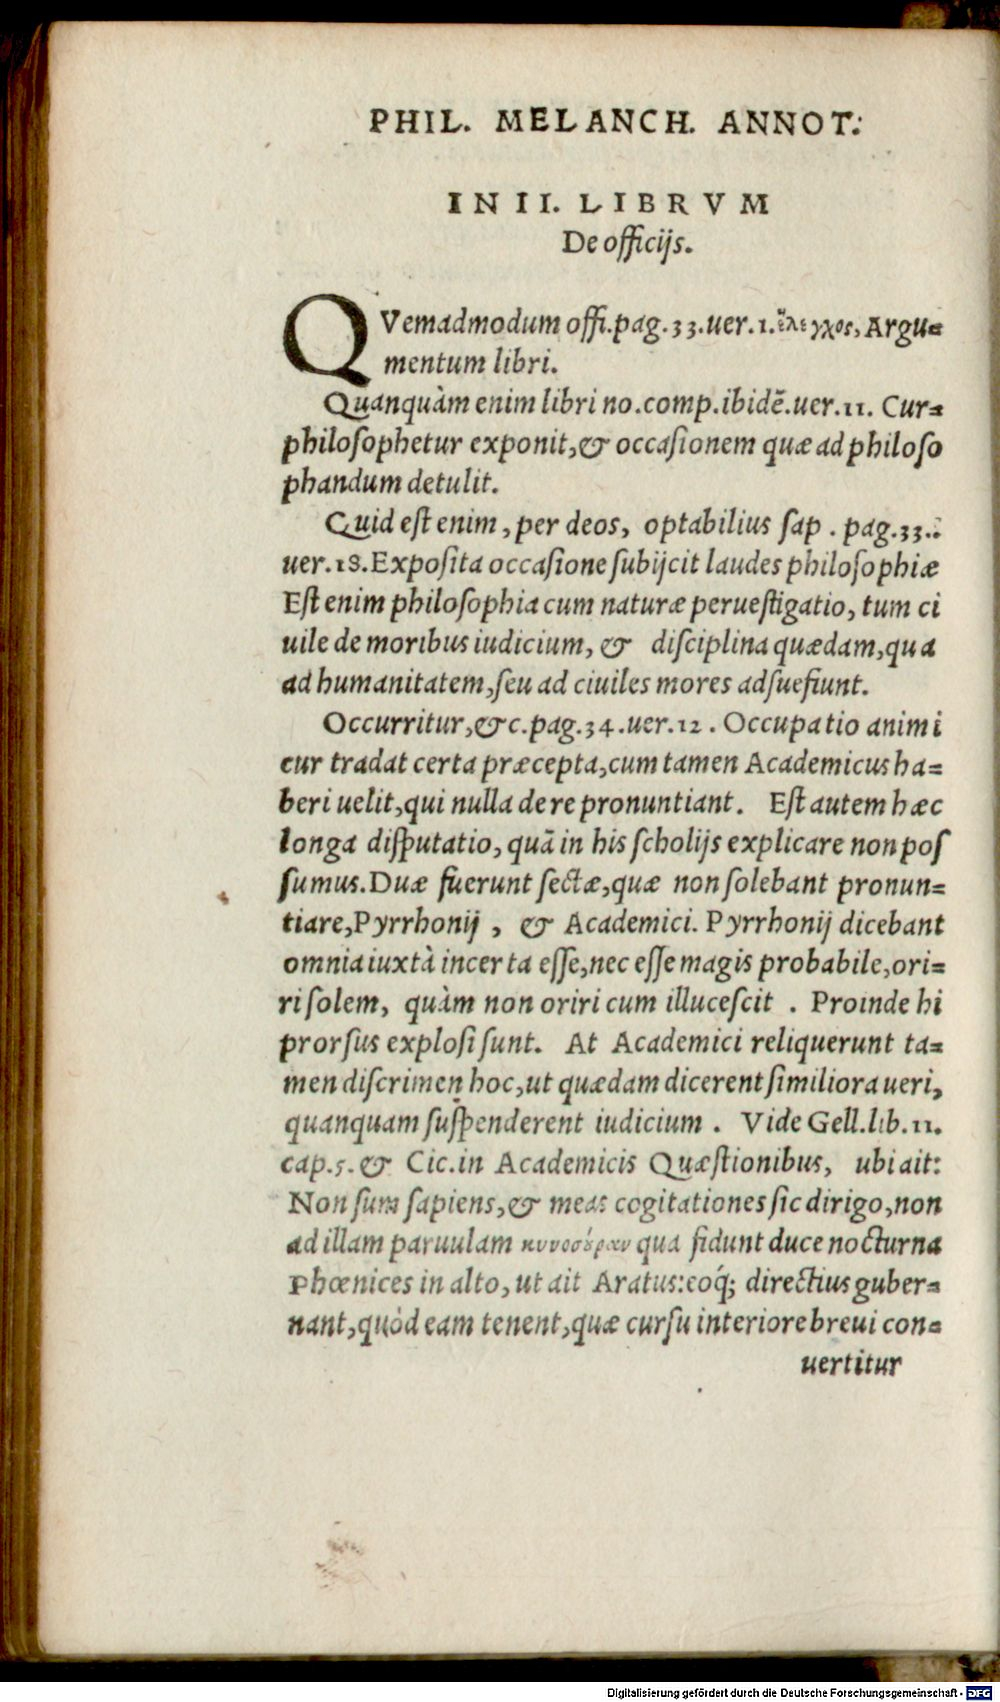 PHIL. MELANCH. ANNOT.
IN II. LIBRVM
De officijs.
QVemadmodum offi.pag.33.uer.1.ἔλεγχος, Argu-
mentum libri.
Quanquàm enim libri no.comp.ibidē.uer.11. Cur-
philosophetur exponit,& occasionem quæ ad philoso
phandum detulit.
Quid est enim, per deos, optabilius sap. pag.33.
uer.18. Exposita occasione subijcit laudes philosophiæ
Est enim philosophia cum naturæ peruestigatio, tum ci
uile de moribus iudicium, & disciplina quædam, qua
ad humanitatem, seu ad ciuiles mores adsuefiunt.
Occurritur,&c.pag.34.uer.12. Occupatio animi
cur tradat certa præcepta, cum tamen Academicus ha-
beri uelit, qui nulla de re pronuntiant. Est autem hæc
longa disputatio, quā in his scholijs explicare non pos
sumus. Duæ fuerunt sectæ, quæ non solebant pronun-
tiare, Pyrrhonij, & Academici. Pyrrhonij dicebant
omnia iuxtà incerta esse, nec esse magis probabile, ori-
ri solem, quàm non oriri cum illucescit. Proinde hi
prorsus explosi sunt. At Academici reliquerunt ta-
men discrimen hoc, ut quædam dicerent similiora ueri,
quanquam suspenderent iudicium. Vide Gell.lib.11.
cap.5.& Cic.in Academicis Quæstionibus, ubi ait:
Non sum sapiens,& meas cogitationes sic dirigo, non
ad illam paruulam κυνοσύραν qua fidunt duce nocturna
Phœnices in alto, ut ait Aratus: eoq́; directius guber-
nant, quòd eam tenent, quæ cursu interiore breui con-
uertitur
Digitalisierung gefördert durch die Deutsche Forschungsgemeinschaft - DFG